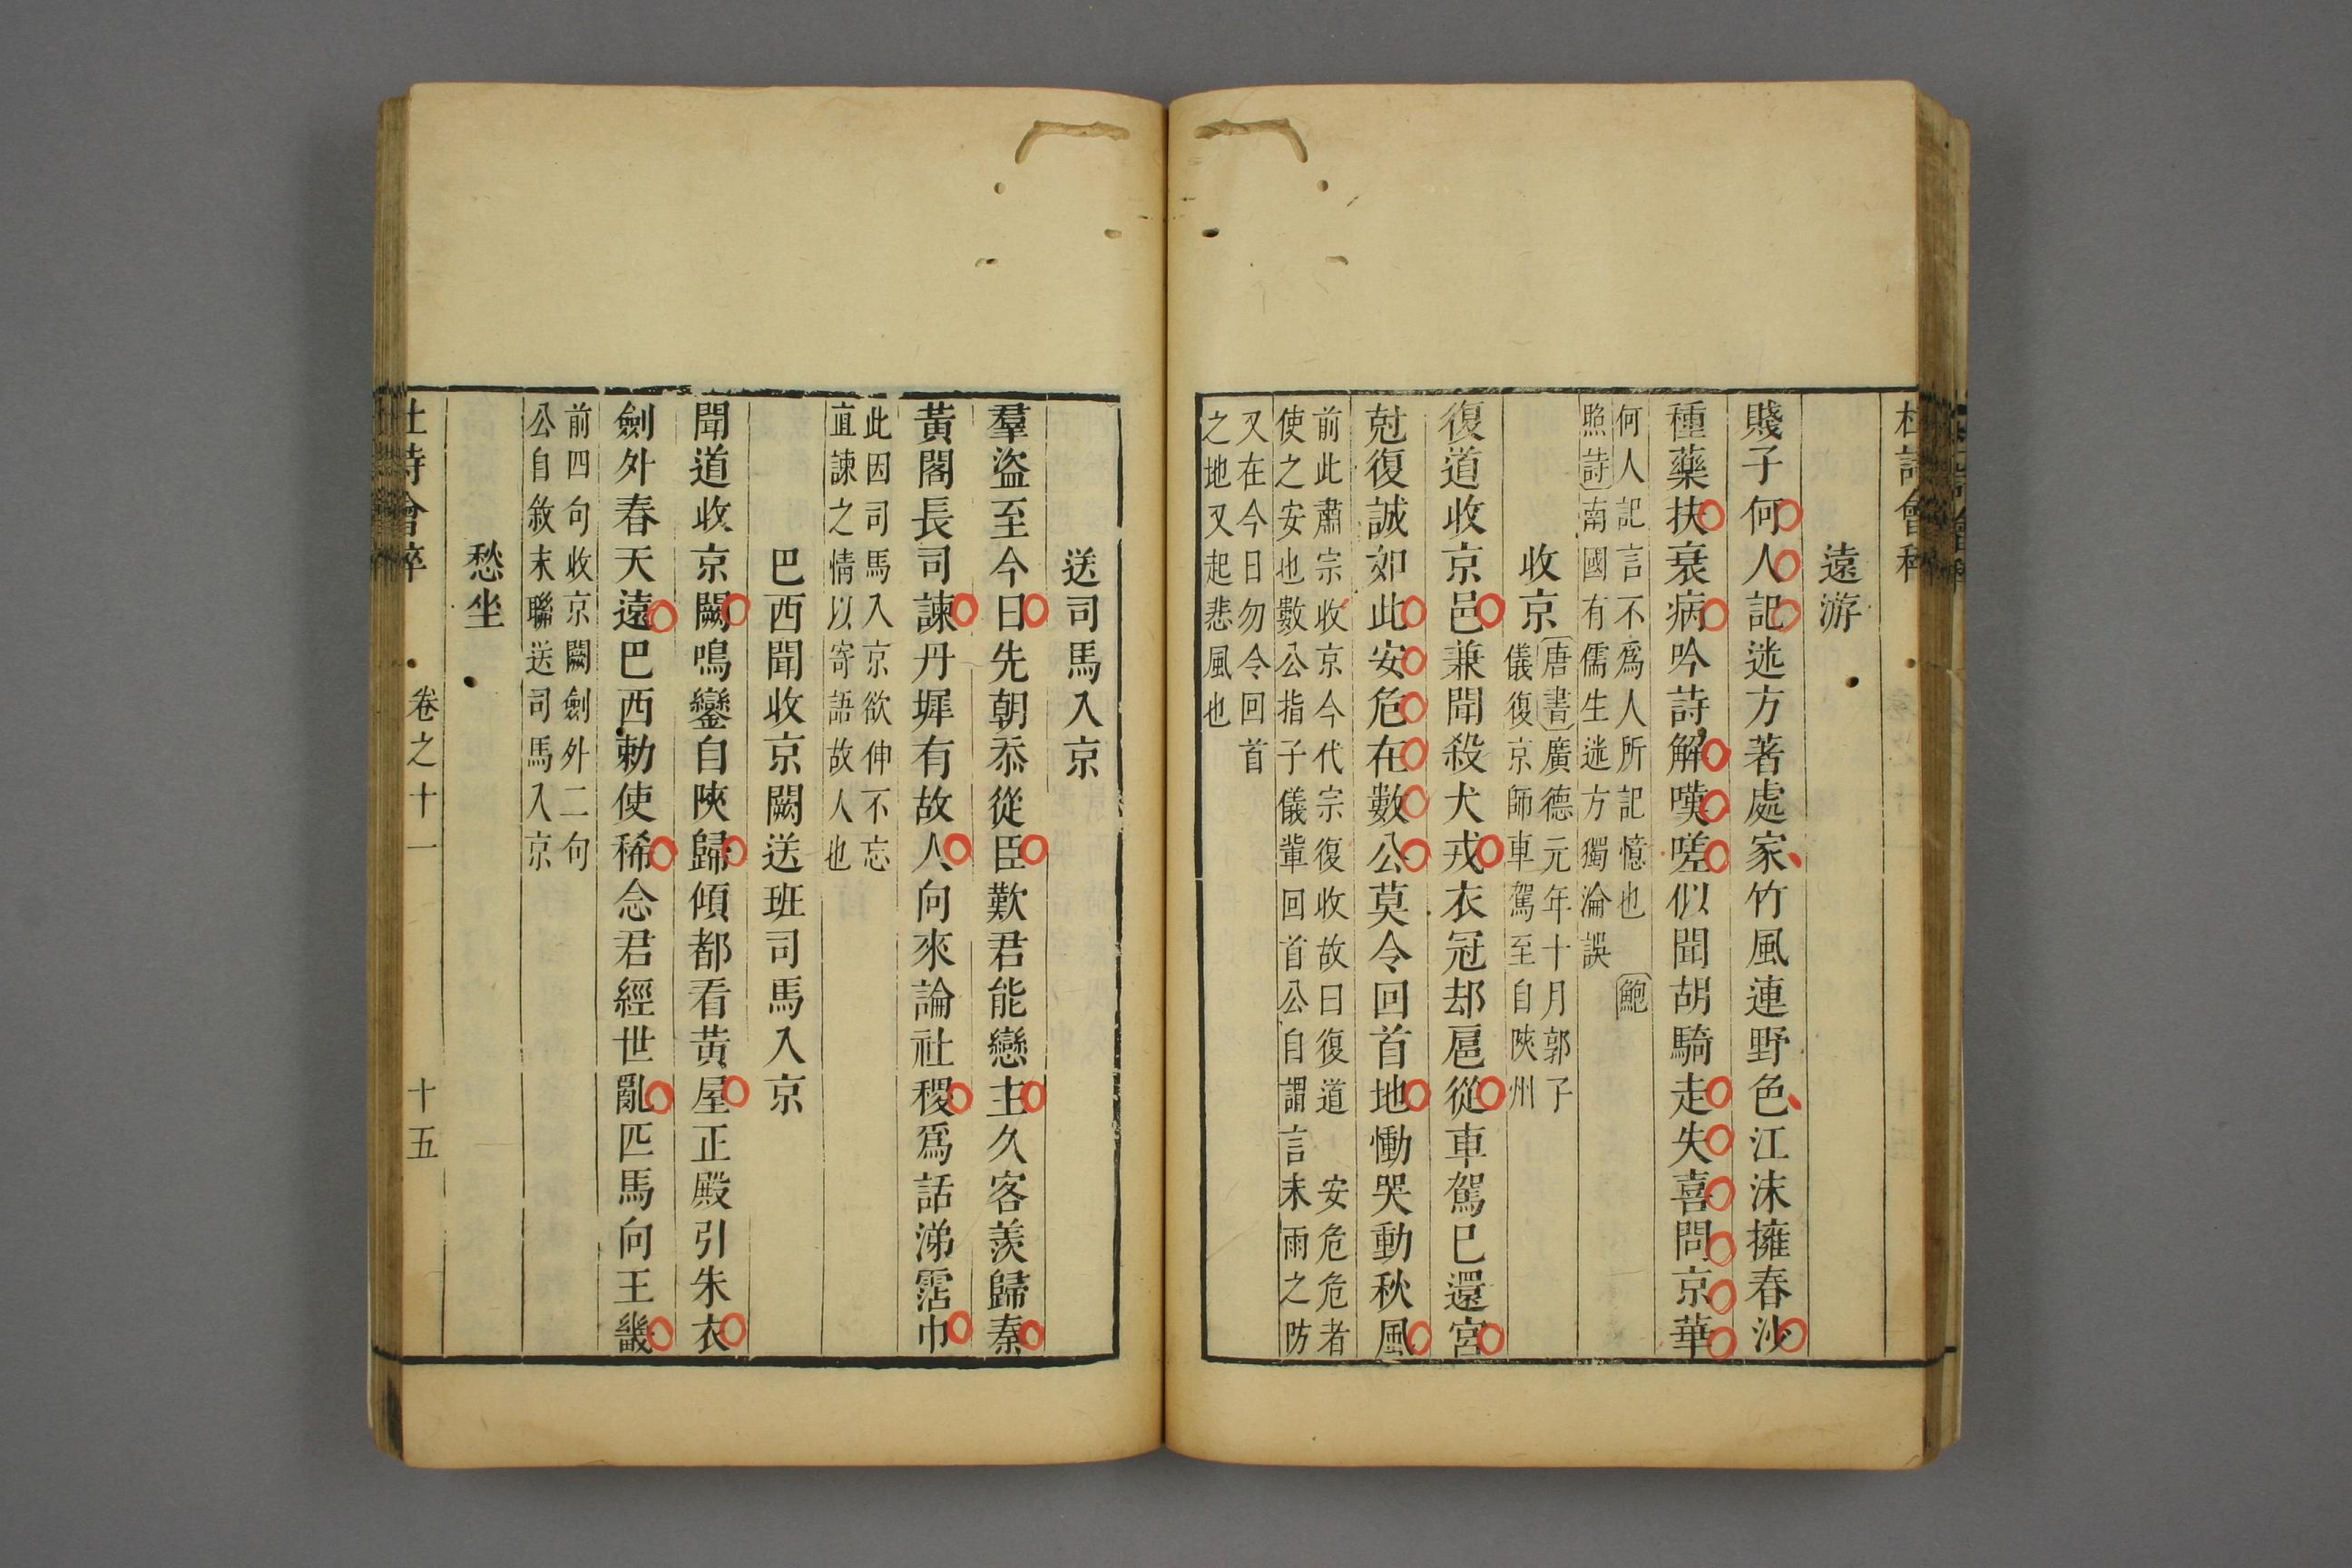 杜詩會稡
遠游
賤子何人記迷方著處家竹風連野色江沫擁春沙
種藥扶衰病吟詩解嘆嗟似聞胡騎走失喜問京華
何人記言不爲人所記憶也 鮑
照詩南國有儒生迷方獨淪誤
收京
唐書廣德元年十月郭子
儀復京師車駕至自陝州
復道收京邑兼聞殺犬戎衣冠却扈從車駕已還宮
尅復誠如此安危在數公莫令回首地慟哭動秋風
前此肅宗收京今代宗復收故曰復道 安危危者
使之安也數公指子儀輩回首公自謂言未雨之防
又在今日勿令回首
之地又起悲風也
送司馬入京
羣盜至今日先朝忝從臣歎君能戀主久客羨歸秦
黃閣長司諫丹墀有故人向來論社稷爲話涕霑巾
此因司馬入京欲伸不忘
直諫之情以寄語故人也
巴西聞收京闕送班司馬入京
聞道收京闕鳴鑾自陝歸傾都看黃屋正殿引朱衣
劍外春天遠巴西勅使稀念君經世亂匹馬向王畿
前四句收京闕劍外二句
公自敘末聯送司馬入京
愁坐
杜詩會稡 卷之十一 十五